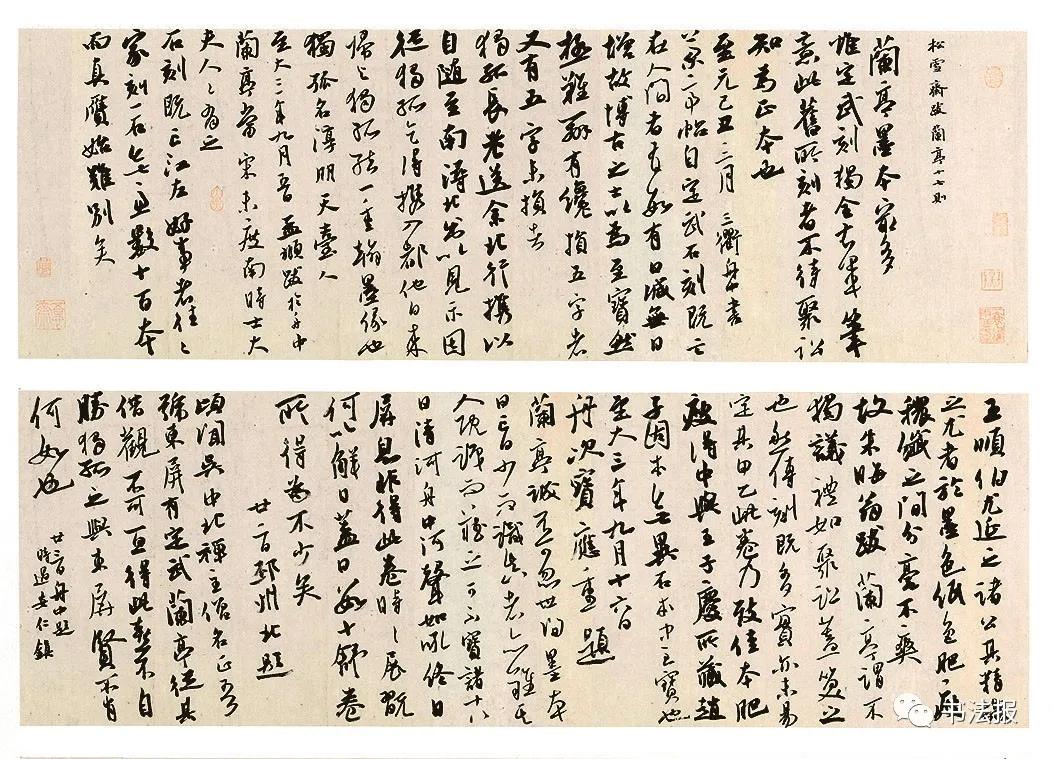 松雪齋跋蘭亭十七則
蘭亭墨本最多
惟定武刻獨全右軍筆
意此舊所刻者不待聚訟
知為正本也
至元己丑三月三衢舟中書
蘭亭帖自定武石刻既亡
在人間者有數有日減無日
增故博古之士以為至寶然
極難辨有纔損五字者
又有五字未損者
獨孤長老送余北行攜以
自隨至南潯北出以見示因
從獨孤乞得攜入都他日來
歸之獨孤結一重翰墨緣也
獨孤名淳明天臺人
至大三年九月五日孟頫跋於舟中
蘭亭當宋未度南時士大
夫人人有之
石刻既亡江左好事者往往
家刻一石無慮數十百本
而真贋始難別矣
王順伯尤延之諸公其精識
之尤者於墨色紙色肥瘦
穠纖之間分毫不爽
故朱晦翁跋蘭亭謂不
獨議禮如聚訟蓋笑之
也然傳刻既多實亦未易
定其甲乙此卷乃致佳本肥
瘦得中與王子慶所藏趙
子固本無異石本中至寶也
至大三年九月十六日
舟次寶應重題
蘭亭誠不可忽世間墨本
日亡日少而識真者蓋難其
人既識而藏之可不寶諸十八
日清河舟中河聲如吼終日
屏息非得此卷時時展翫
何以解日蓋日數十舒卷
所得為不少矣
廿二日邳州北題
頃聞吳中北禪主僧名正吾
號東屏有定武蘭亭從其
借觀不可一旦得此喜不自
勝獨孤之與東屏賢不肖
何如也
廿三日舟中題
時過安仁鎮
书法报